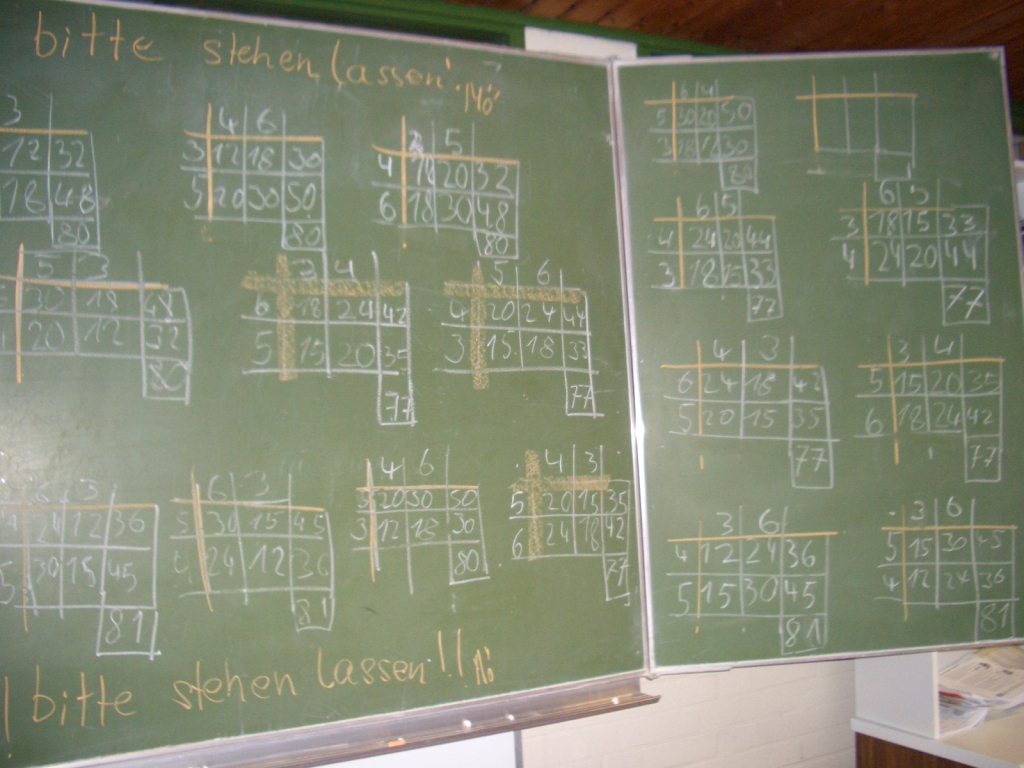 bitte stehen lassen! Mö
3
12 32
18 48
80
4 6
3 12 18 30
5 20 30 50
80
3 5
4 12 20 32
6 18 30 48
80
5 3
30 18 48
20 12 32
80
3 4
6 18 24 42
5 15 20 35
77
5 6
4 20 24 44
3 15 18 33
77
6 3
4 24 12 36
5 30 15 45
81
6 3
5 30 15 45
4 24 12 36
81
4 6
5 20 30 50
3 12 18 30
80
4 3
5 20 15 35
6 24 18 42
77
bitte stehen lassen!! Mö
6 4
5 30 20 50
3 18 12 30
80
6 5
4 24 20 44
3 18 15 33
77
6 5
3 18 15 33
4 24 20 44
77
4 3
6 24 18 42
5 20 15 35
77
3 4
5 15 20 35
6 18 24 42
77
3 6
4 12 24 36
5 15 30 45
81
3 6
5 15 30 45
4 12 24 36
81